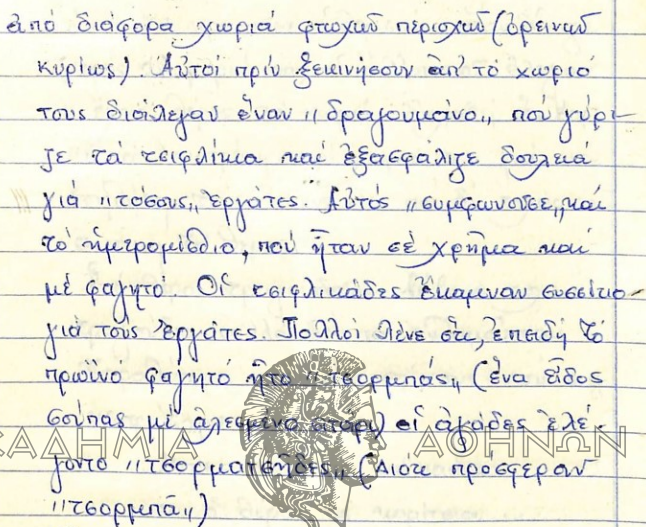 ἀπό διάφορα χωριά φτωχῶν περιοχῶν (ὀρεινῶν
κυρίως). Αὐτοί πρίν ξεκινήσουν ἀπ' τό χωριό
τους διάλεγαν ἕναν ,,δραγουμάνο,, πού γύρι-
ζε τά τσιφλίκια καί ἐξασφάλιζε δουλειά
γιά ,,τόσους,, ἐργάτες. Αὐτός ,,συμφωνοῦσε,, καί
τό ἡμερομίσθιο, πού ἦταν σέ χρῆμα καί
μέ φαγητό. Οἱ τσιφλικάδες ἔκαμναν συσσίτιο
γιά τούς ἐργάτες. Πολλοί λένε ὅτι, ἐπειδή τό
πρωϊνό φαγητό ἦτο ,,τσορμπάς,, (ἕνα εἶδος
σούπας μέ ἀλεσμένο σιτάρι) οἱ ἀγάδες ἐλέ-
γοντο ,,τσορματσῆδες,, (διότι πρόσφεραν
,,τσορμπά,,)
ΑΚΑΔΗΜΙΑ ΑΘΗΝΩΝ